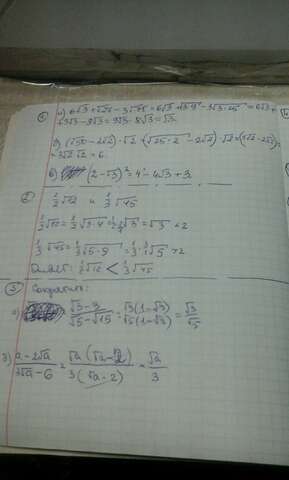 ① а) 6√3 + √27 - 3√75 = 6√3 + √3·9 - 3√3·25 = 6√3 +
+ 3√3 - 9√3 = 9√3 - 8√3 = √3.
б) (√50 - 2√2)·√2 = (√25·2 - 2√2)·√2 = (5√2 - 2√2)·√2 =
= 3√2·√2 = 6.
в) (2-√3)² = 4 - 4√3 + 3.
② ½√12 и ⅓√45
½√12 = ½√3·4 = ½·2√3 = √3 <2
⅓√45 = ⅓√5·9 = ⅓·3√5 = √5 >2
Ответ: ½√12 < ⅓√45
③ Сократить:
а) √3-3 / √5-√15 = √3(1-√3) / √5(1-√3) = √3 / √5
б) a-2√a / 3√a-6 = √a(√a-2) / 3(√a-2) = √a / 3